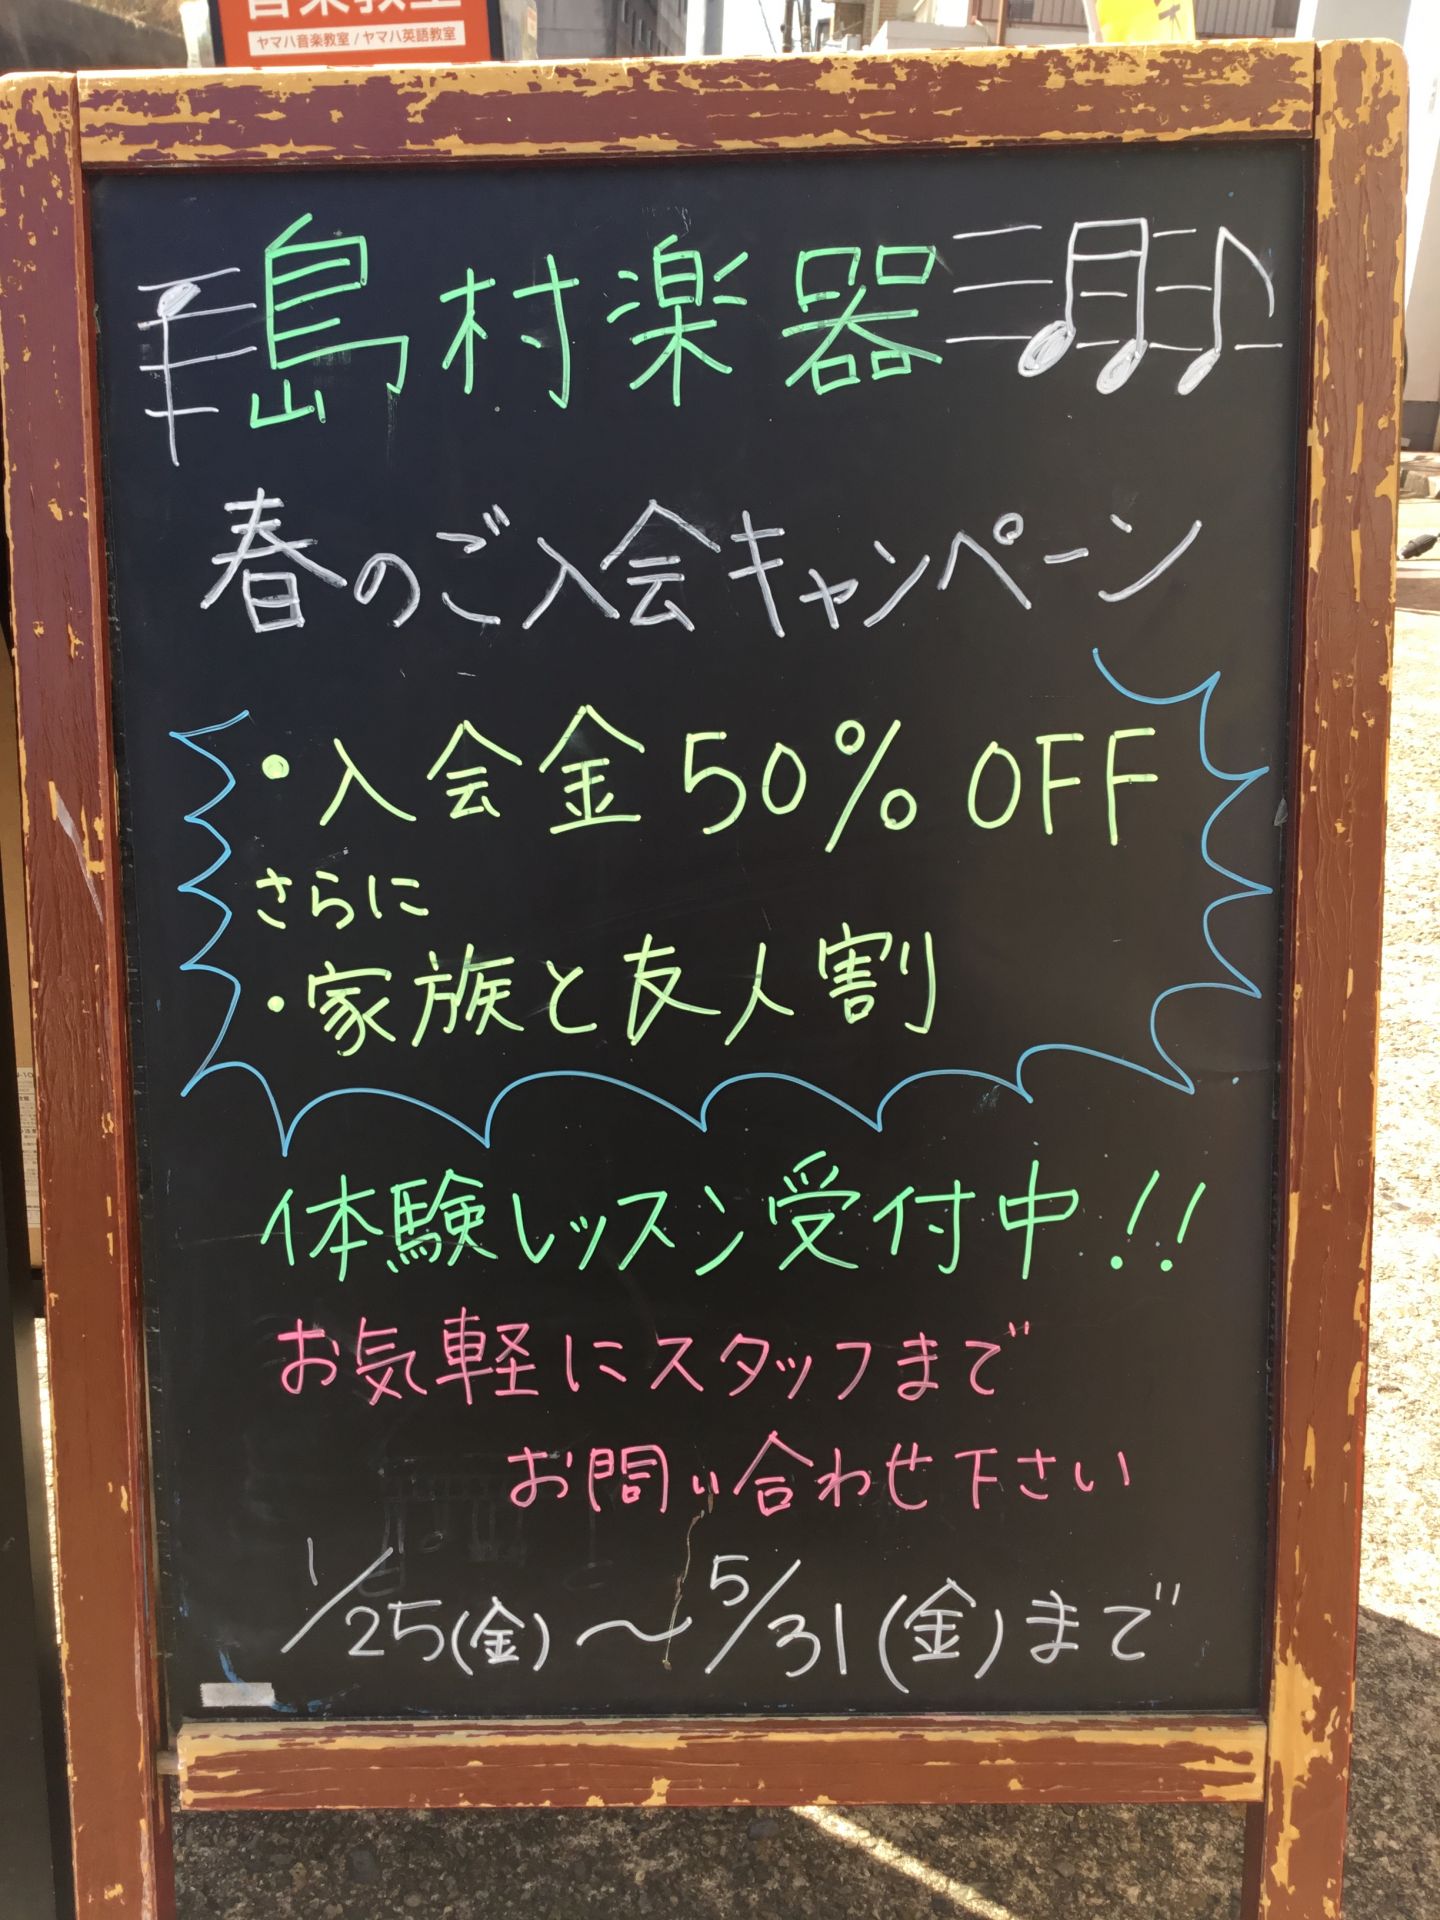 音楽教室
ヤマハ音楽教室 / ヤマハ英語教室
島村楽器
春のご入会キャンペーン
・入会金50% OFF
さらに
・家族と友人割
体験レッスン受付中!!
お気軽にスタッフまで
お問い合わせ下さい
1/25(金)〜5/31(金)まで